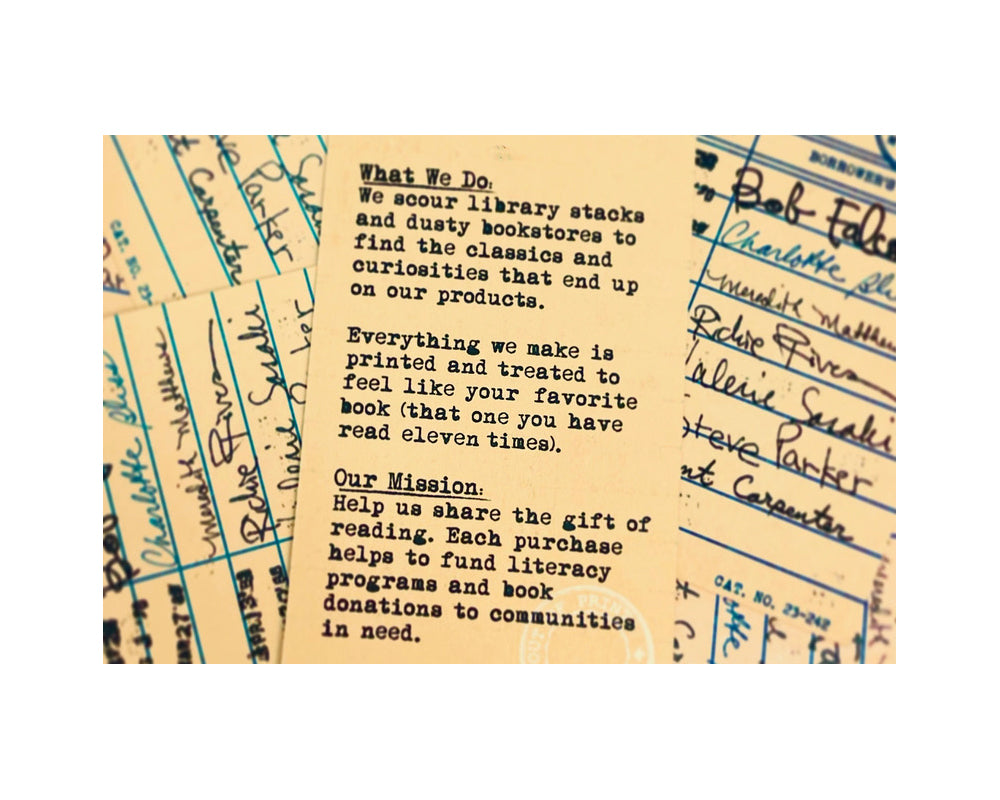 What We Do:
We scour library stacks
and dusty bookstores to
find the classics and
curiosities that end up
on our products.
Everything we make is
printed and treated to
feel like your favorite
book (that one you have
read eleven times).
Our Mission:
Help us share the gift of
reading. Each purchase
helps to fund literacy
programs and book
donations to communities
in need.
OUT PRIN
Carpenter
Parker
CAT. NO. 23-
Charlotte
Meredith Matthews
Richie Rivers
Sasaki
BORROWER'S
Bob
Charlotte
Meredith Matthews
Richie Rivers
Valerie Sasaki
Steve Parker
Carpenter
CAT. NO. 23-242